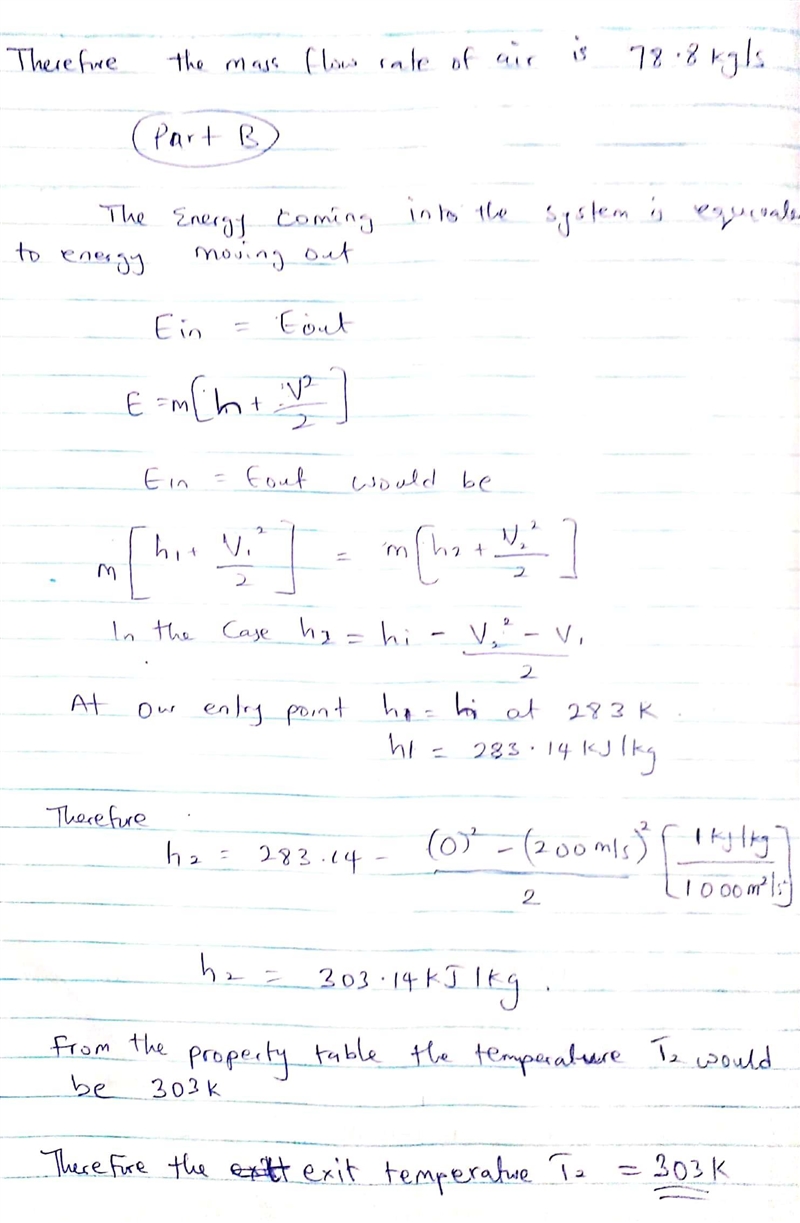 Therefore the mass flow rate of air is 78.8 kg/s
Part B
The Energy coming into the system is equivale
to energy moving out
Ein = Eout
E = m[h + V²/2]
Ein = Eout would be
m[h₁ + V₁²/2] = m[h₂ + V₂²/2]
In the Case h₂ = hi - V₂² - V₁/2
At our entry point h₁ = hi at 283 K.
h1 = 283.14 kJ/kg
Therefore
h₂ = 283.14 - (0)² - (200 m/s)²/2 [1 kJ/kg / 1000 m²/s²]
h₂ = 303.14 kJ/kg.
From the property table the temperature T₂ would
be 303K
Therefore the exit exit temperature T₂ = 303K